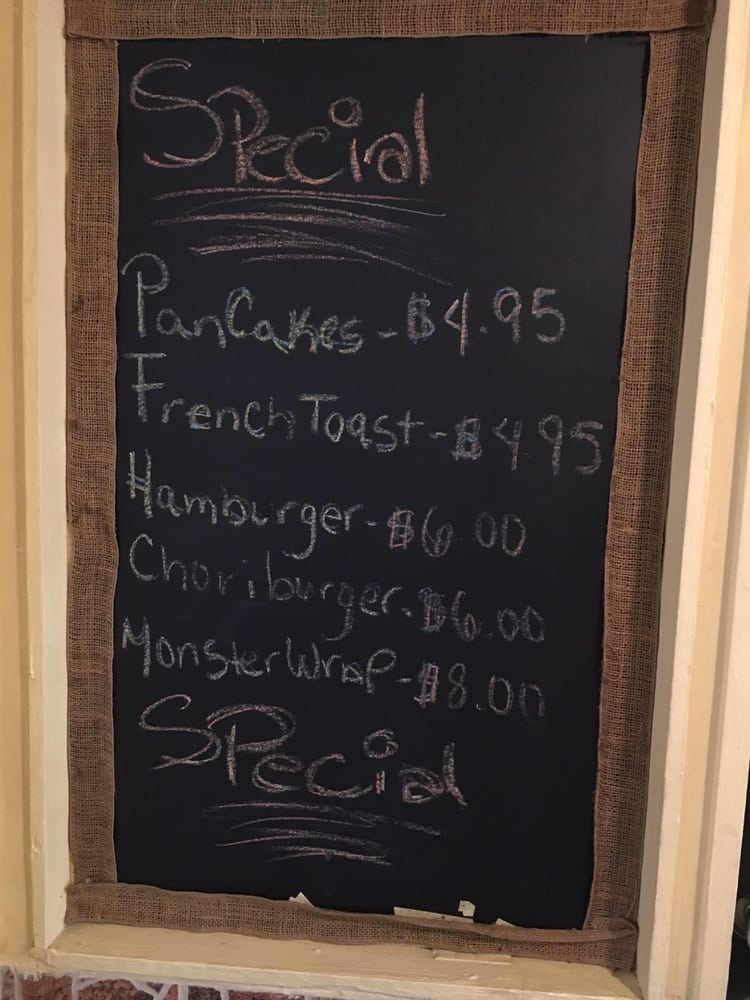 Special
PanCakes - $4.95
French Toast - $4.95
Hamburger - $6.00
Choriburger - $6.00
Monster Wrap - $8.00
Special